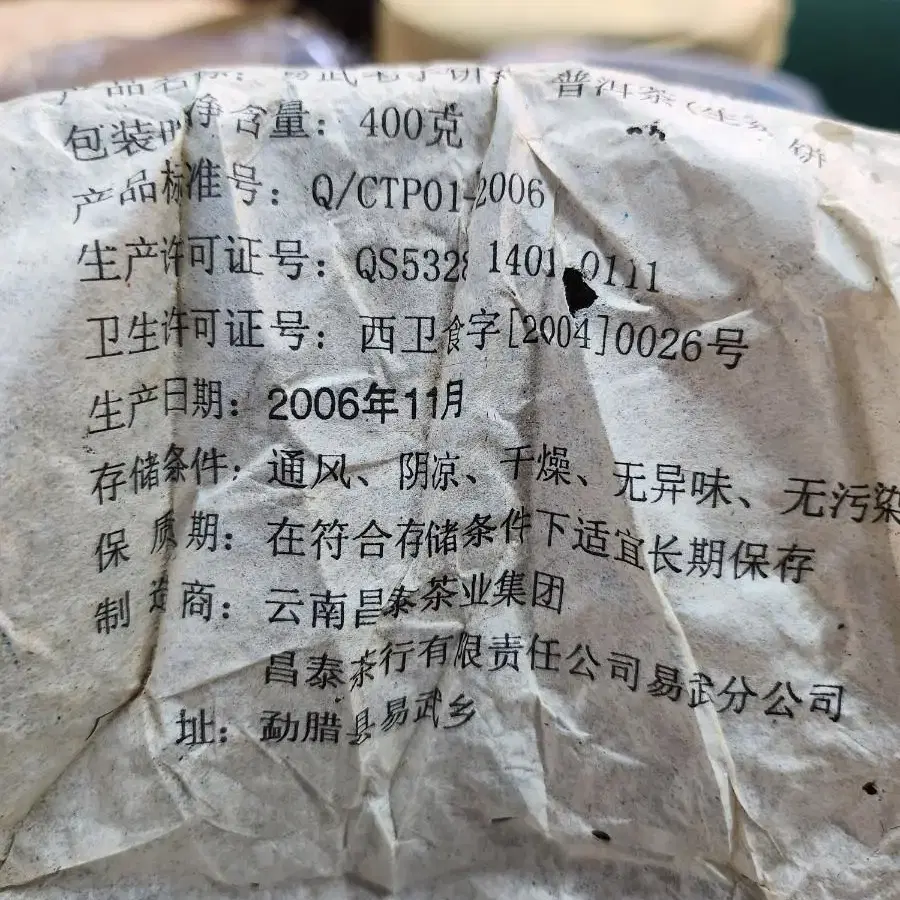 产品名称：易武老字饼茶 普洱茶(生茶)饼
包装时 净含量：400克
产品标准号：Q/CTP01-2006
生产许可证号：QS5328 1401 0111
卫生许可证号：西卫食字[2004]0026号
生产日期：2006年11月
存储条件：通风、阴凉、干燥、无异味、无污染
保质期：在符合存储条件下适宜长期保存
制造商：云南昌泰茶业集团
昌泰茶行有限责任公司易武分公司
址：勐腊县易武乡